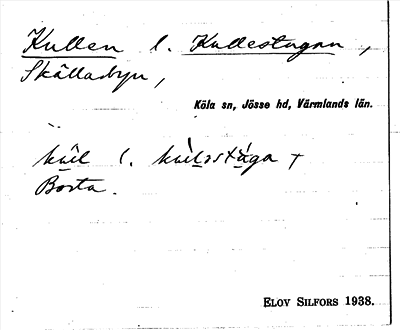 Kullen l. Kullestugan,
Skällabyn,
Köla sn, Jösse hd, Värmlands län.
l.
Borta.
ELOV SILFORS 1938.